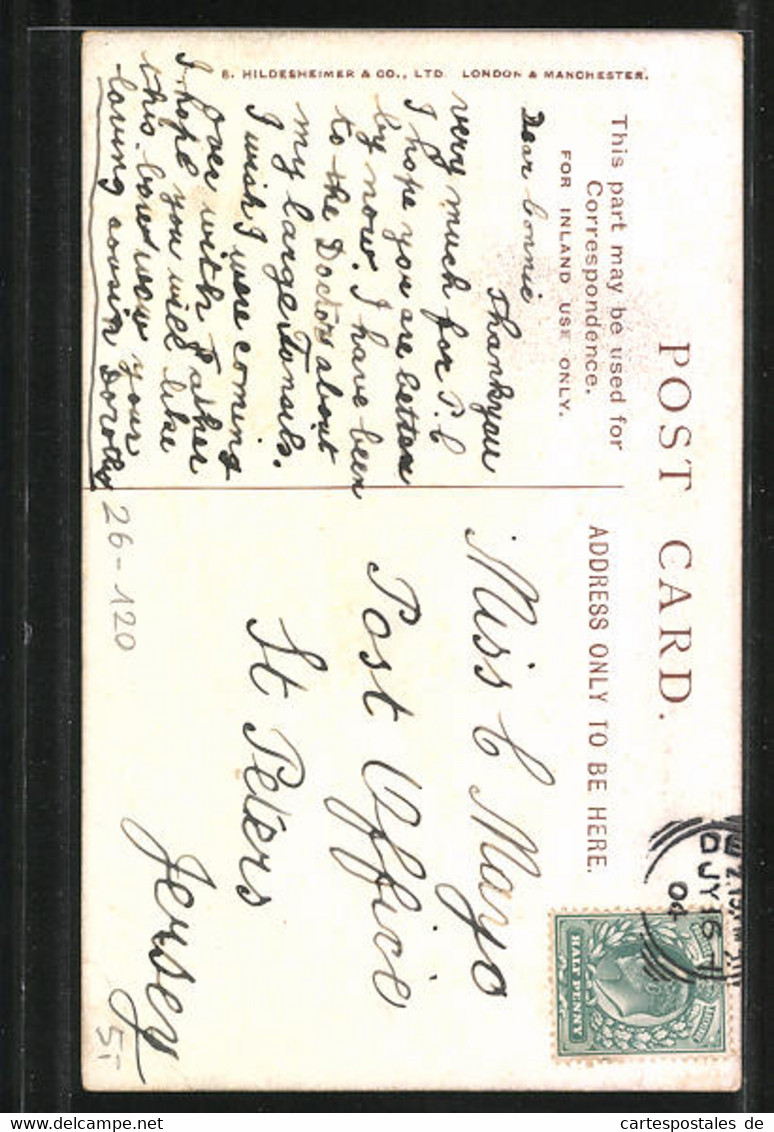 POST CARD.
This part may be used for
Correspondence.
FOR INLAND USE ONLY.
ADDRESS ONLY TO BE HERE.
Dear Connie
Thankyou
very much for P.C
I hope you are better
by now. I have been
to the Doctors about
my large Tonsils.
I wish I were coming
over with Father
I hope you will like
this bow wow your
loving cousin Dorothy
Miss C Mayo
Post Office
St Peters
Jersey
26-120
5,-
B. HILDESHEIMER & CO., LTD. LONDON & MANCHESTER.
2.15
JY 16
04
HALF PENNY
the-collectors.com
cartespostales.de